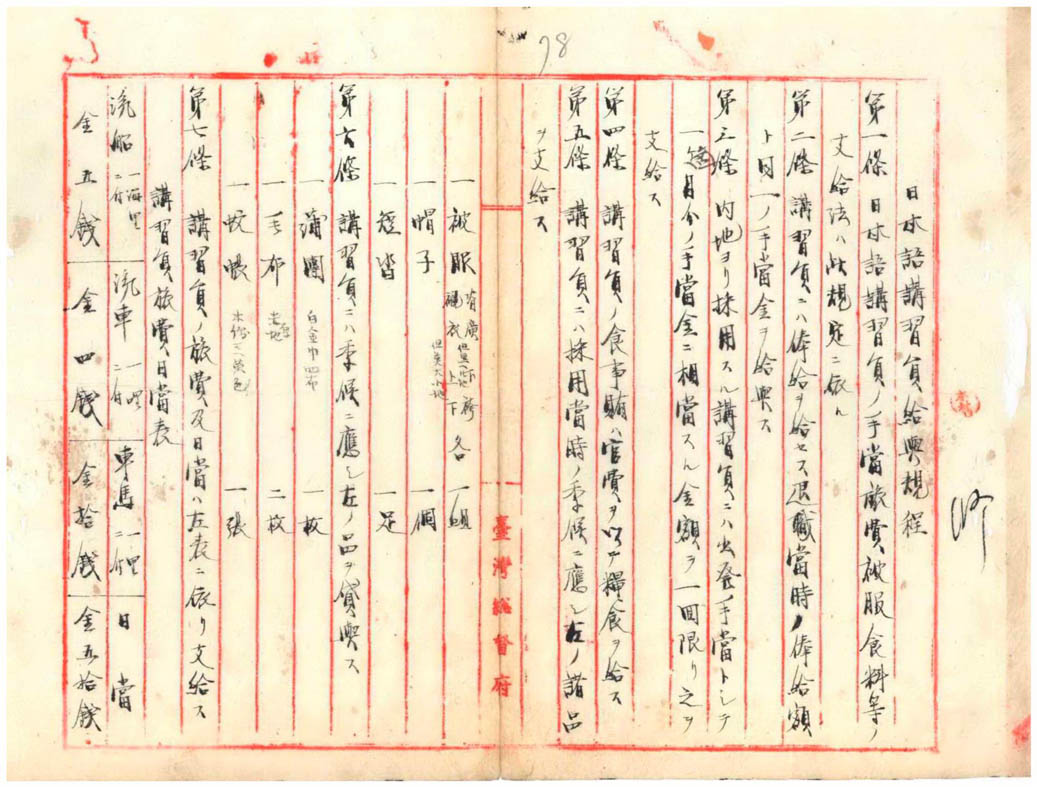 78
日本語講習員給與規程
第一條 日本語講習員ノ手當旅費被服食料等ノ
支給法ハ此規定ニ依ル
第二條 講習員ニハ俸給ヲ給セス退職當時ノ俸給額
ト同一ノ手當金ヲ給與ス
第三條 内地ヨリ採用スル講習員ニハ出発手當トシテ
一箇月分ノ手當金ニ相當スル金額ヲ一回限リ之ヲ
支給ス
第四條 講習員ノ食事賄ハ官費ヲ以テ糧食ヲ給ス
第五條 講習員ニハ採用當時ノ季候ニ應シ左ノ諸品
ヲ支給ス
臺灣總督府
一 被服 各 一組
一 帽子 一個
一 短沓 一足
第六條 講習員ニハ季候ニ應シ左ノ品ヲ貸與ス
一 蒲團 白金巾四布 一枚
一 毛布 二枚
一 蚊帳 一張
第七條 講習員ノ旅費及日當ハ左表ニ依リ支給ス
講習員旅費日當表
汽船 一海里ニ付 汽車 一哩ニ付 車馬 一里ニ付 日當
金五錢 金四錢 金拾錢 金五拾錢